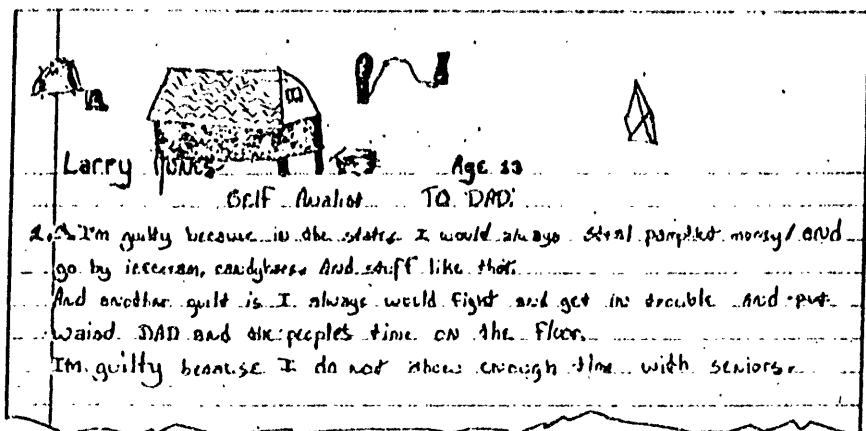 Larry Jones Age 13
Self TO DAD:
1. I'm guilty because in the states I would always steal pamplet money/and
go by icecream, candybars and stuff like that.
And another guilt is I always would fight and get in trouble and put
DAD and the peoples time on the Floor.
Im guilty because I do not show enough time with seniors.